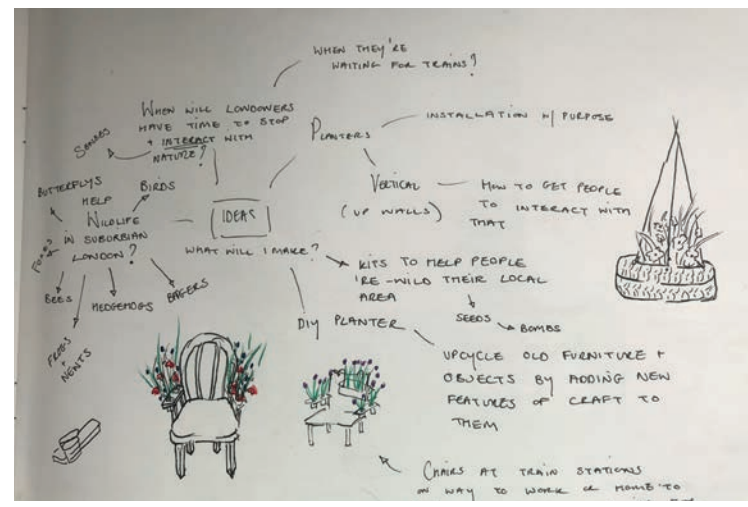 WHEN THEY'RE
WAITING FOR TRAINS?
WHEN WILL LONDONERS
HAVE TIME TO STOP
+ INTERACT WITH
NATURE?
SENSES
PLANTERS
INSTALLATION W/ PURPOSE
VERTICAL
(UP WALLS)
HOW TO GET PEOPLE
TO INTERACT WITH
THAT
BUTTERFLYS
BIRDS
HELP
WILDLIFE
IN SUBURBIAN
LONDON?
BEES
HEDGEHOGS
BAGERS
FROGS
+
NENTS
IDEAS
WHAT WILL I MAKE?
KITS TO HELP PEOPLE
'RE-WILD THEIR LOCAL
AREA
SEEDS
BOMBS
DIY PLANTER
UPCYCLE OLD FURNITURE +
OBJECTS BY ADDING NEW
FEATURES OF CRAFT TO
THEM
CHAIRS AT TRAIN STATIONS
ON WAY TO WORK OR HOME TO